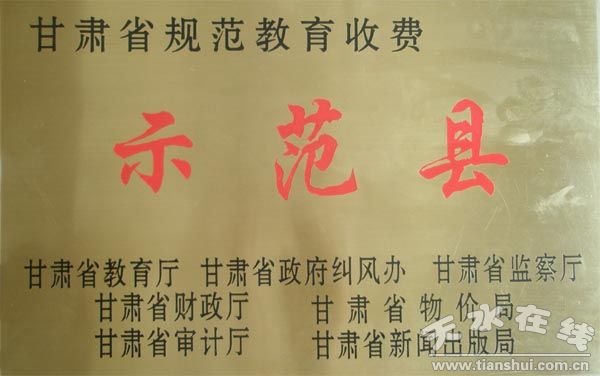 甘肃省规范教育收费
示范县
甘肃省教育厅 甘肃省政府纠风办 甘肃省监察厅
甘肃省财政厅 甘肃省物价局
甘肃省审计厅 甘肃省新闻出版局
天水在线
www.tianshui.com.cn